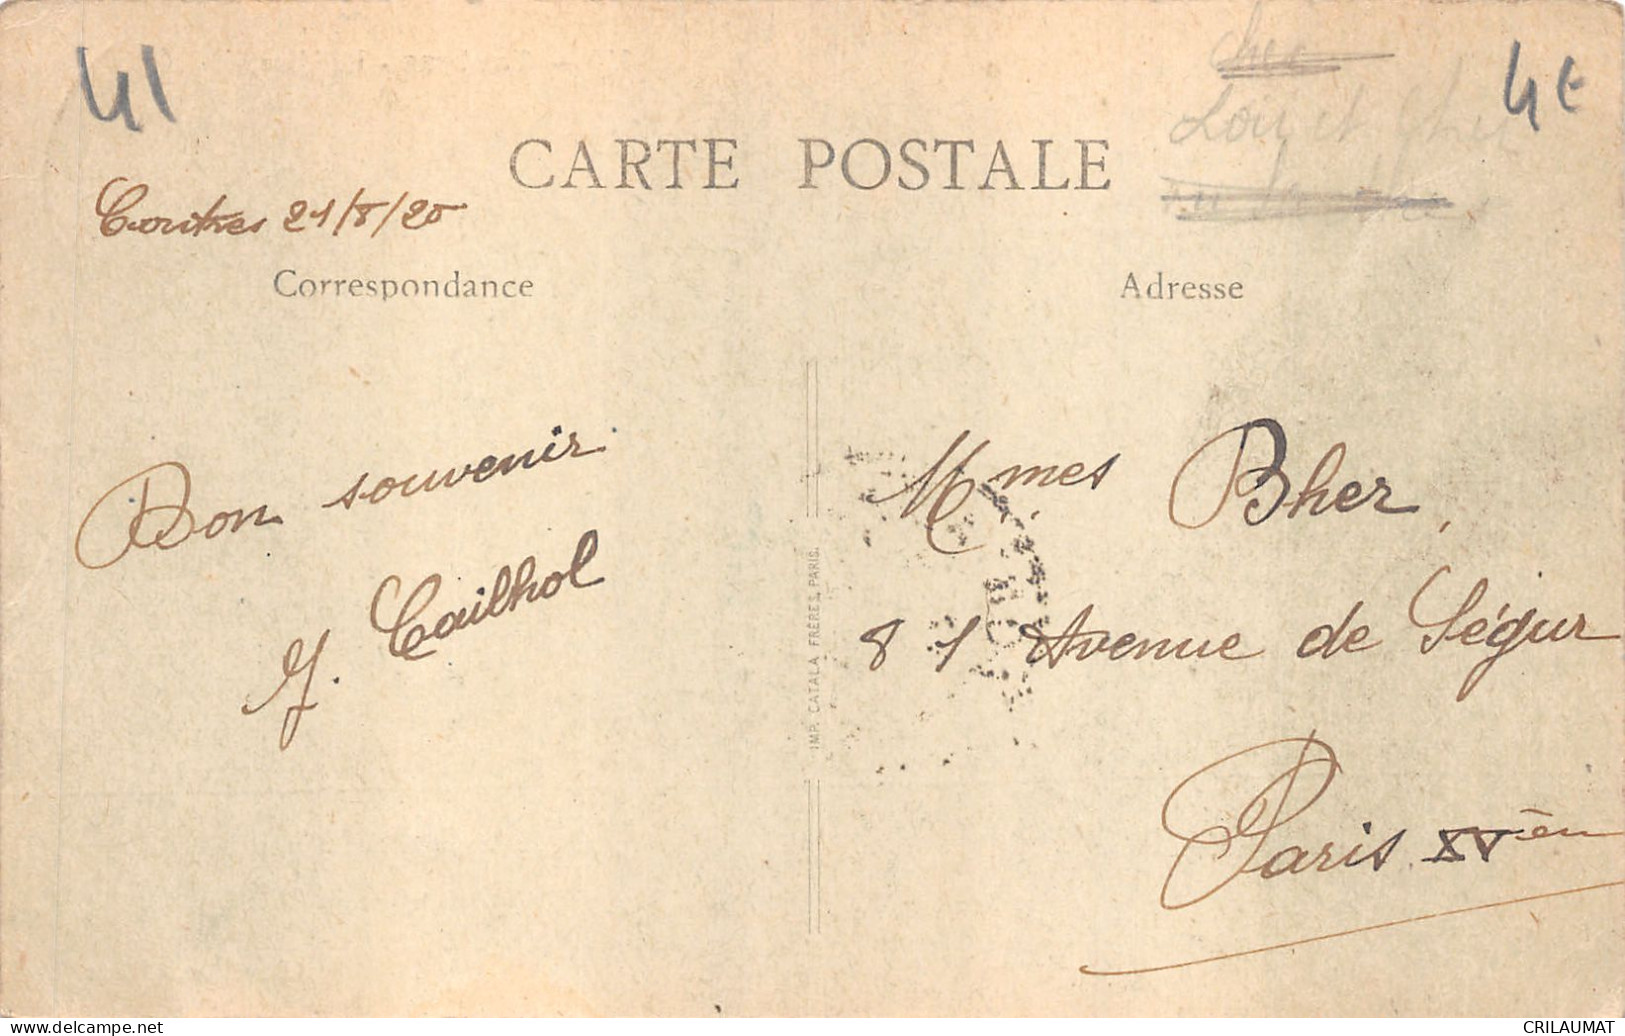 41
4€
Cher
Loir et Cher
CARTE POSTALE
Contres 21/8/20
Correspondance
Adresse
Bon souvenir
M. Cailhol
IMP. CATALA FRÈRES, PARIS.
Mmes Bher,
81 Avenue de Ségur
Paris XVèm
CRILAUMAT